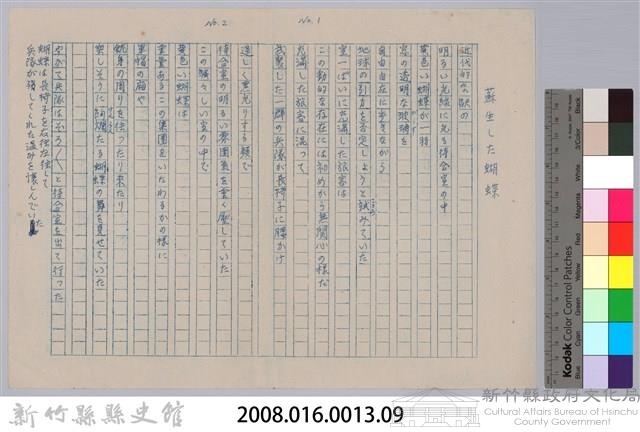 No. 1
No. 2
蘇生した蝴蝶
近代的な駅の
明るい光線に光る待合室の中
黄色い蝴蝶が一羽
窓の透明な玻璃を
自由自在に歩きながら
地球の引力を否定しようと試みていた
室一ぱいに充満した旅客は
この動的な存在には初めから無関心の様だ
充満した旅客に混って
武装した一群の兵隊が長椅子に腰かけ
逞しく黒光りする頬で
待合室の明るい雰囲気を重く壓していた
この騒々しい室の中で
黄色い蝴蝶は
重量あるこの集団をいたわるかの様に
軍帽の廂や
銃身の周りを伝ったり来たり
楽しそうに絢爛たる蝴蝶の舞を見せていた
やがて兵隊はぞろ〱と待合室を出て行った
蝴蝶は長椅子を右往左往して
兵隊が残してくれた温みを懐しんでいた
新竹縣縣史館
2008.016.0013.09
新竹縣政府文化局
Cultural Affairs Bureau of Hsinchu
County Government
Kodak Color Control Patches
Blue
Cyan
Green
Yellow
Red
Magenta
White
3/Color
Black